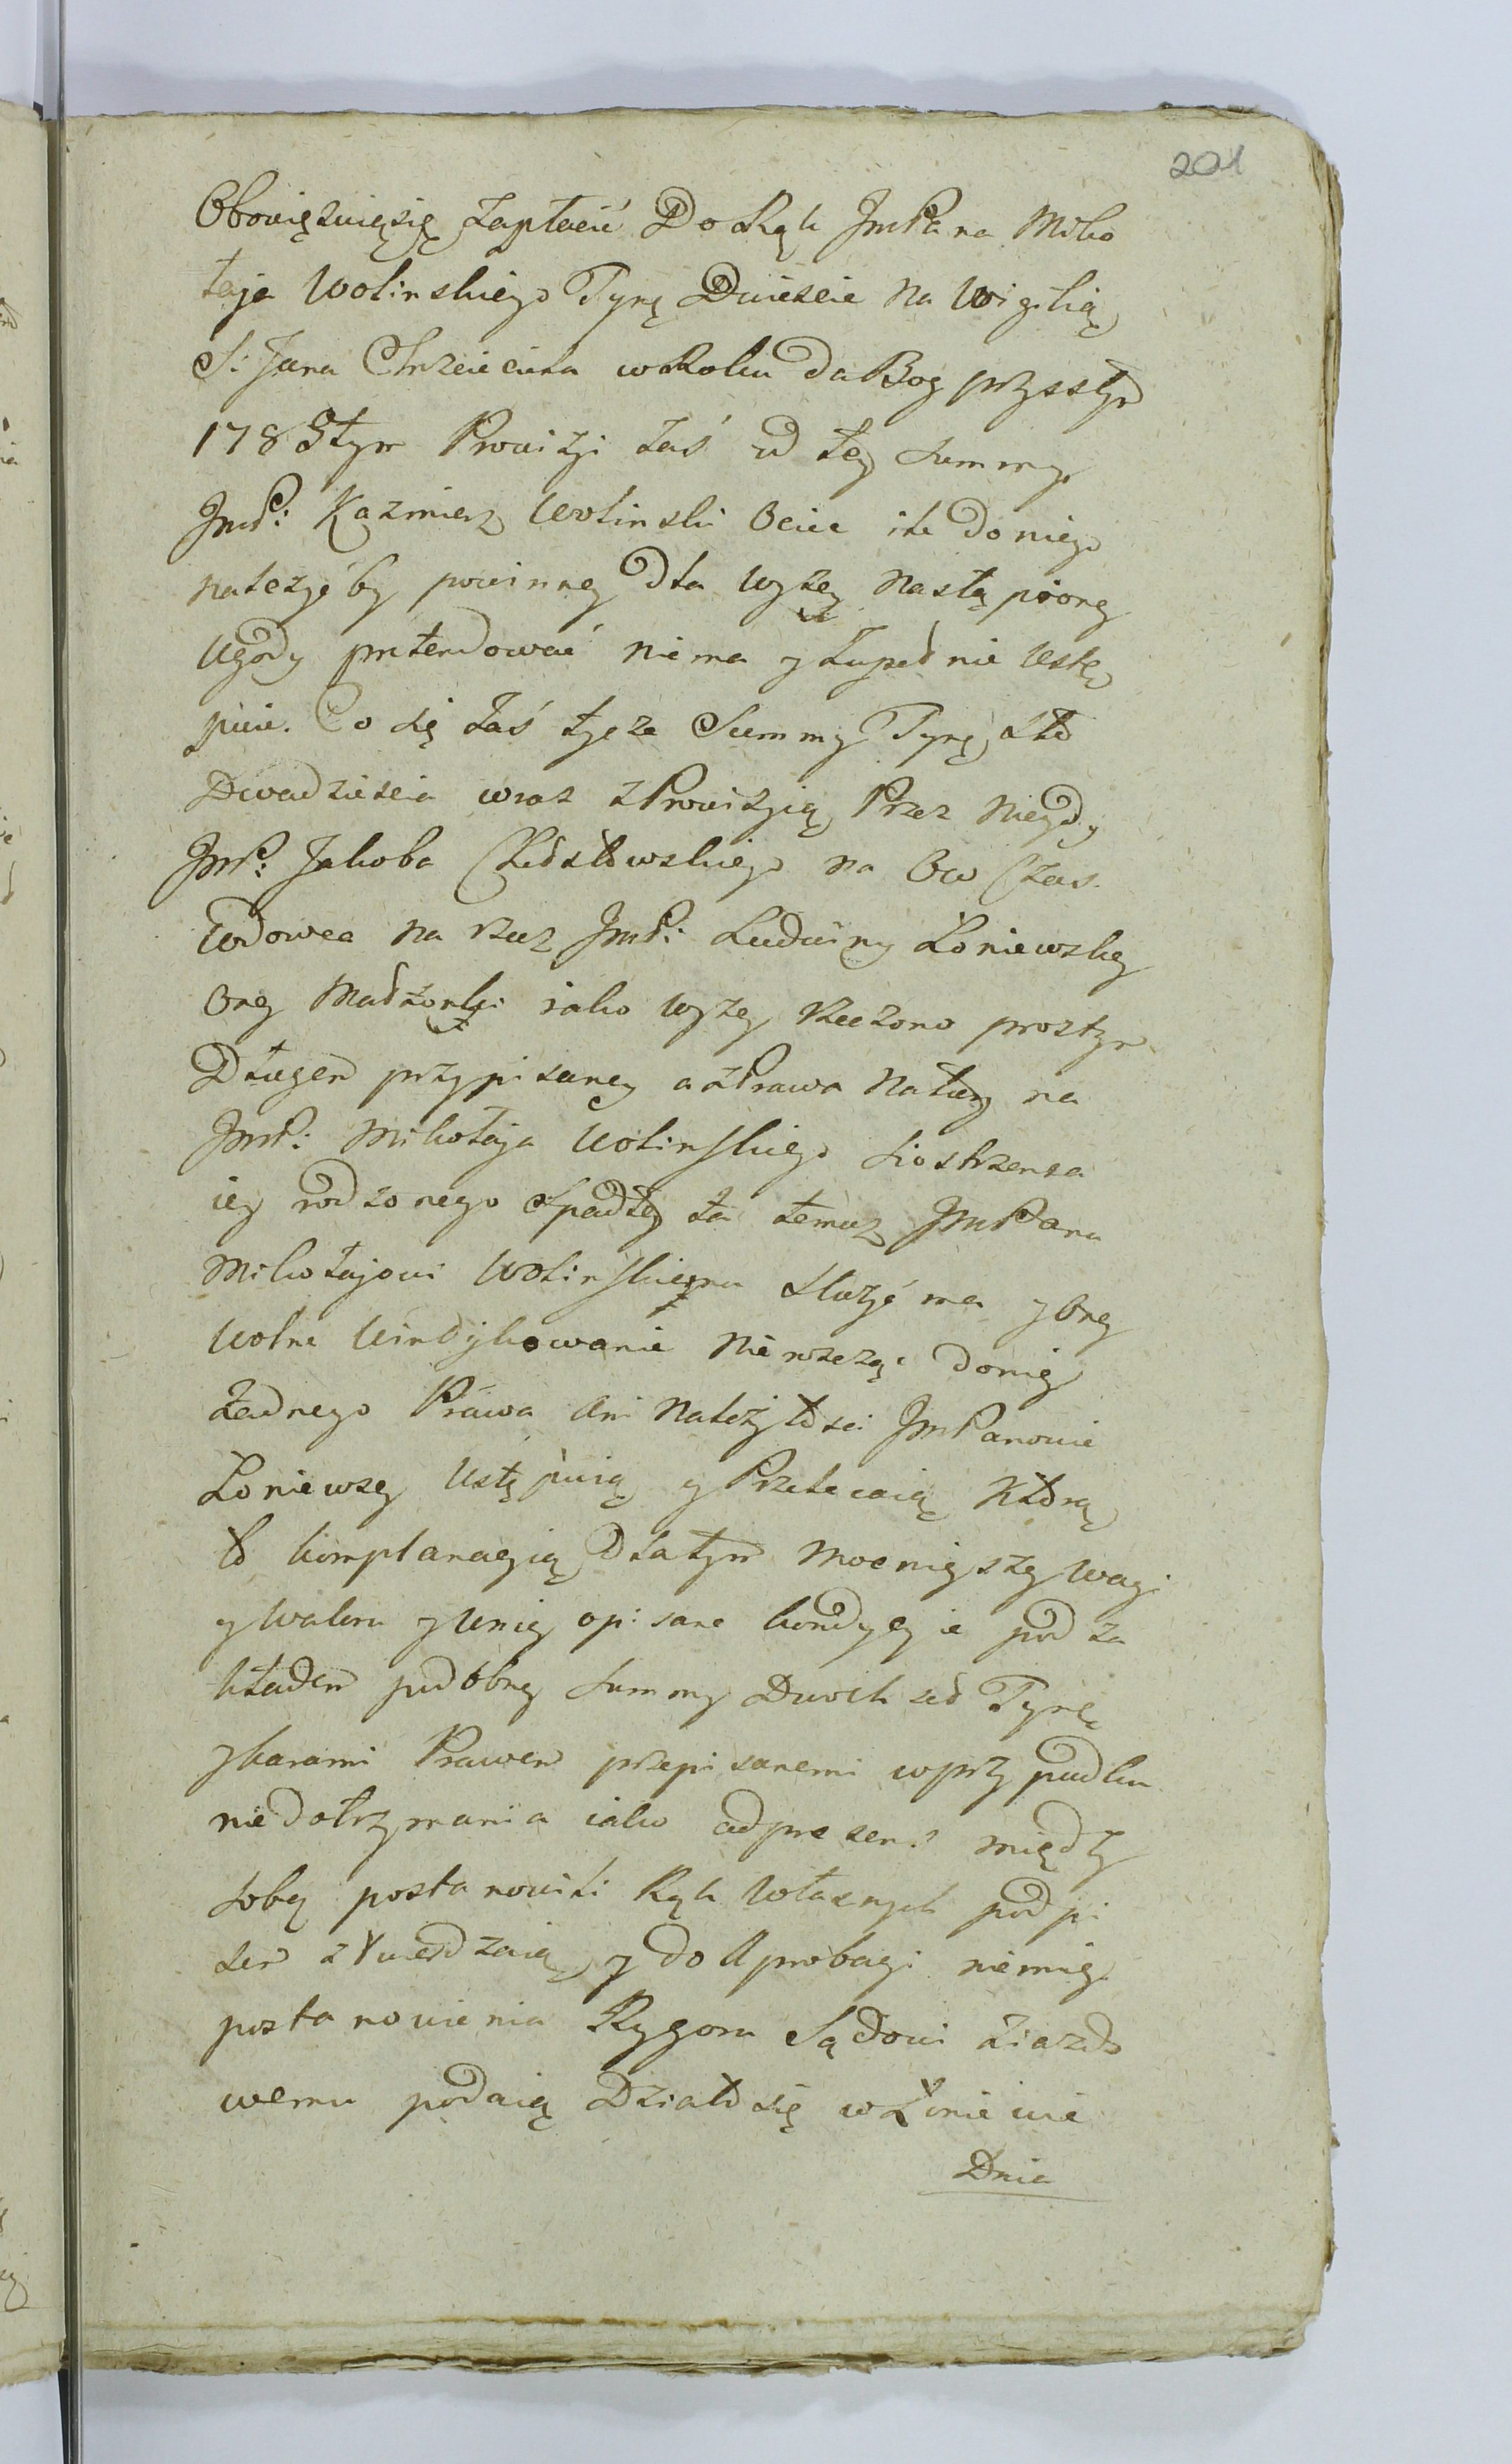 201
Obowięzuię się zapłacić Do Rąk JmPana Miko
łaja Wolinskiego Tynf Dwiescie na Wigilią
S: Jana Chrzciciela w Roku da Bog przyszłym
1783tym Prowizyi zaś od tey summy
JmP: Kazmierz Wolinski Ociec ile do niego
należyć by powinney dla wyżey nastąpioney
ugody pretendować niema y zupełnie ustę
puie. Co się zaś tycze Summy Tynf. sto
Dwadziescia wraz z Prowizyią Przez niegdy
JmP: Jakoba Chodsłowskiego na Ow Czas
Wdowca na rzecz JmP: Ludwiny Łoniewskiey
Oney Małżonki iako wyżey rzeczono prostym
Długem przypisaney a z Prawa Natury na
JmP: Mikołaja Wolinskiego siostrzenca
iey rodzonego spadłey ta temuż JmPanu
Mikołajowi Wolinskiemu służyć ma y Oney
wolne windykowanie nierosząc do niey
żadnego Prawa ani należytosci JmPanowie
Łoniewscy ustępuią y Przelewaią Ktorą
to komplanacyią dla tym mocnieyszey wagi
y waloru y w niey opisane kondycyie pod za
kładem podobney summy Dwoch set Tynf.
y karami Prawem przepisanemi w przypadku
niedotrzymania iako ad presens między
sobą postanowili Rąk własnych podpi
sem ztwierdzaią, y do Aprobacyi niemiey
postanowienia Rygoru Sądowi ziazdo
wemu podaią Działo się w Łoniewie
Dnia